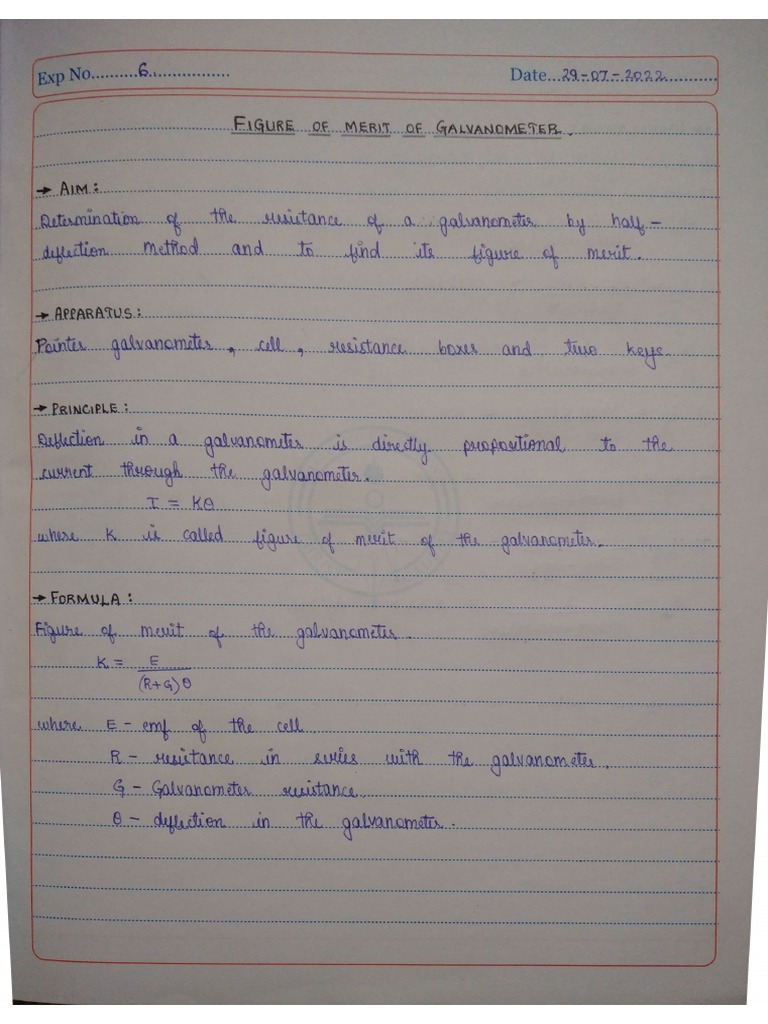 Exp No..........6................. Date...29-07-2022............
FIGURE OF MERIT OF GALVANOMETER.
→ AIM:
Determination of the resistance of a galvanometer by half-
deflection method and to find its figure of merit.
→ APPARATUS:
Pointer galvanometer, cell, resistance boxes and two keys
→ PRINCIPLE:
Deflection in a galvanometer is directly propositional to the
current through the galvanometer.
I = Kθ
where K is called figure of merit of the galvanometer.
→ FORMULA:
Figure of merit of the galvanometer.
K = E
(R+G)θ
where E - emf of the cell
R - resistance in series with the galvanometer.
G - Galvanometer resistance
θ - deflection in the galvanometer.